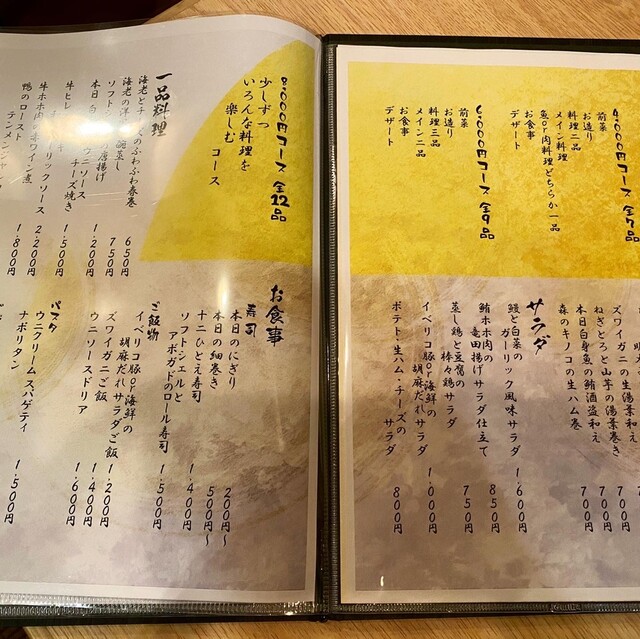 4,000円コース 全7品
前菜
お造り
料理二品
メイン料理
魚or肉料理どちらか一品
お食事
デザート
6,000円コース 全9品
前菜
お造り
料理三品
メイン二品
お食事
デザート
ズワイガニの生湯葉和え 700円
ねぎとろと山芋の湯葉巻き 700円
本日白身魚の鮪酒盗和え 700円
森のキノコの生ハム巻
サラダ
鰻と白菜の
ガーリック風味サラダ 1,600円
鮪ホホ肉の
竜田揚げサラダ仕立て 850円
蒸し鶏と豆腐の
棒々鶏サラダ 750円
イベリコ豚or海鮮の
胡麻だれサラダ 1,000円
ポテト・生ハム・チーズの
サラダ 800円
8,000円コース 全12品
少しずつ
いろんな料理を
楽しむ
コース
一品料理
海老と
ふわふわ春巻 650円
海老の
ソフト
唐揚げ 750円
本日白
ウニソース 1,200円
牛ヒレ
チーズ焼き 1,500円
ガーリックソース 2,200円
牛ホホ肉の赤ワイン煮 1,800円
鴨のロースト
お食事
寿司
本日のにぎり 200円〜
本日の細巻き 500円〜
十二ひとえ寿司 1,400円
ソフトシェルと
アボガドのロール寿司 1,500円
ご飯物
イベリコ豚or海鮮の
胡麻だれサラダご飯 1,200円
ズワイガニご飯 1,400円
ウニソースドリア 1,600円
パスタ
ウニクリームスパゲティ 1,500円
ナポリタン